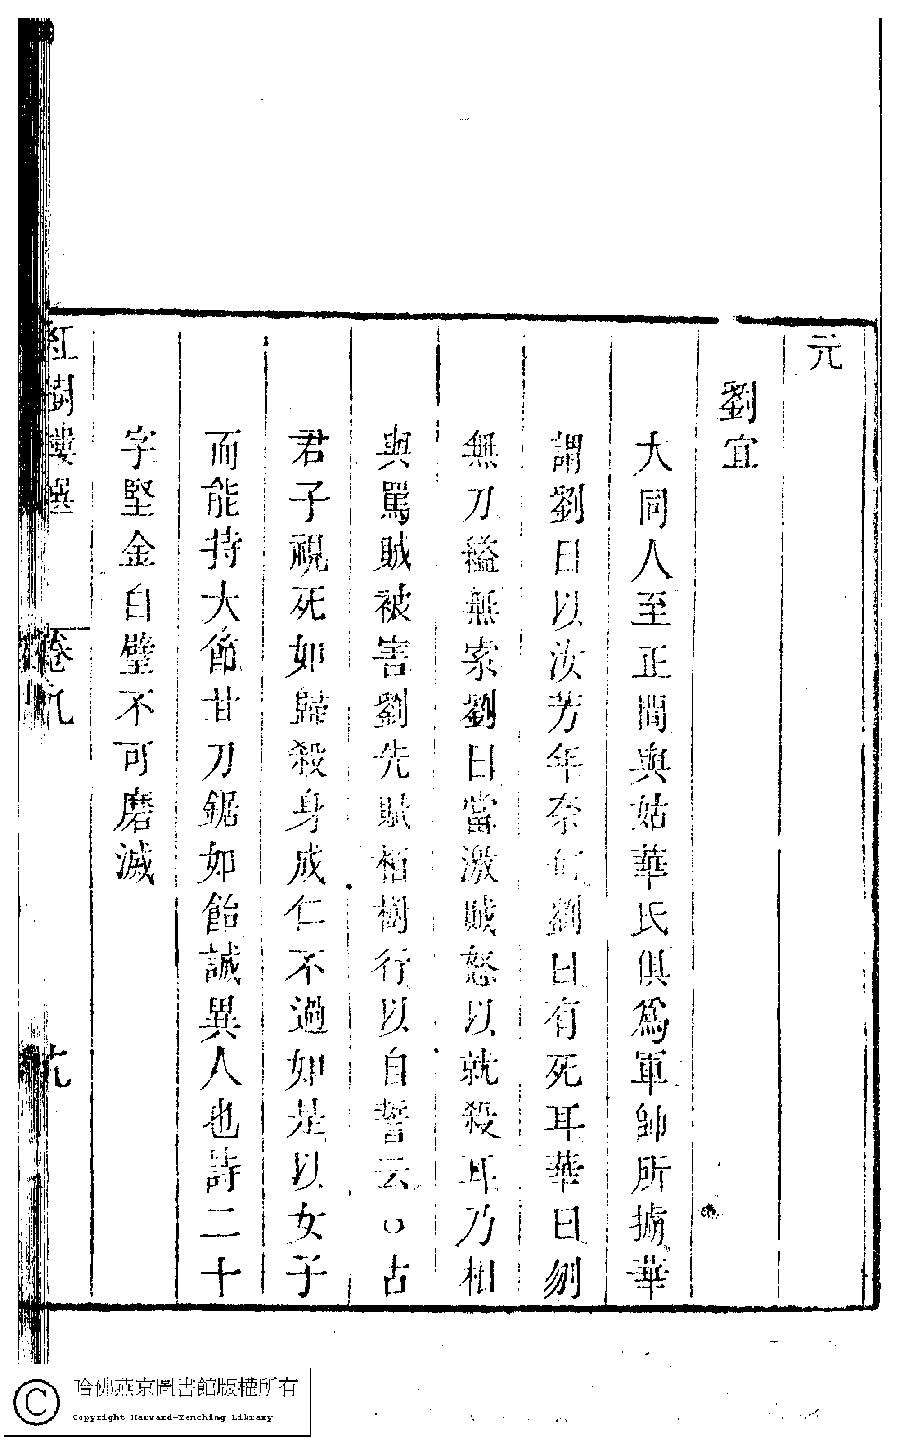 元
劉宜
大同人至正間與姑華氏俱爲軍帥所擄華
謂劉曰以汝芳年奈何劉曰有死耳華曰刎
無刀縊無索劉曰當激賊怒以就殺耳乃相
與罵賊被害劉先賦柏樹行以自誓云○古
君子視死如歸殺身成仁不過如是以女子
而能持大節甘刀鋸如飴誠異人也詩二十
字堅金白璧不可磨滅
紅樹樓選 卷九
哈佛燕京圖書館版權所有
Copyright Harvard-Yenching Library